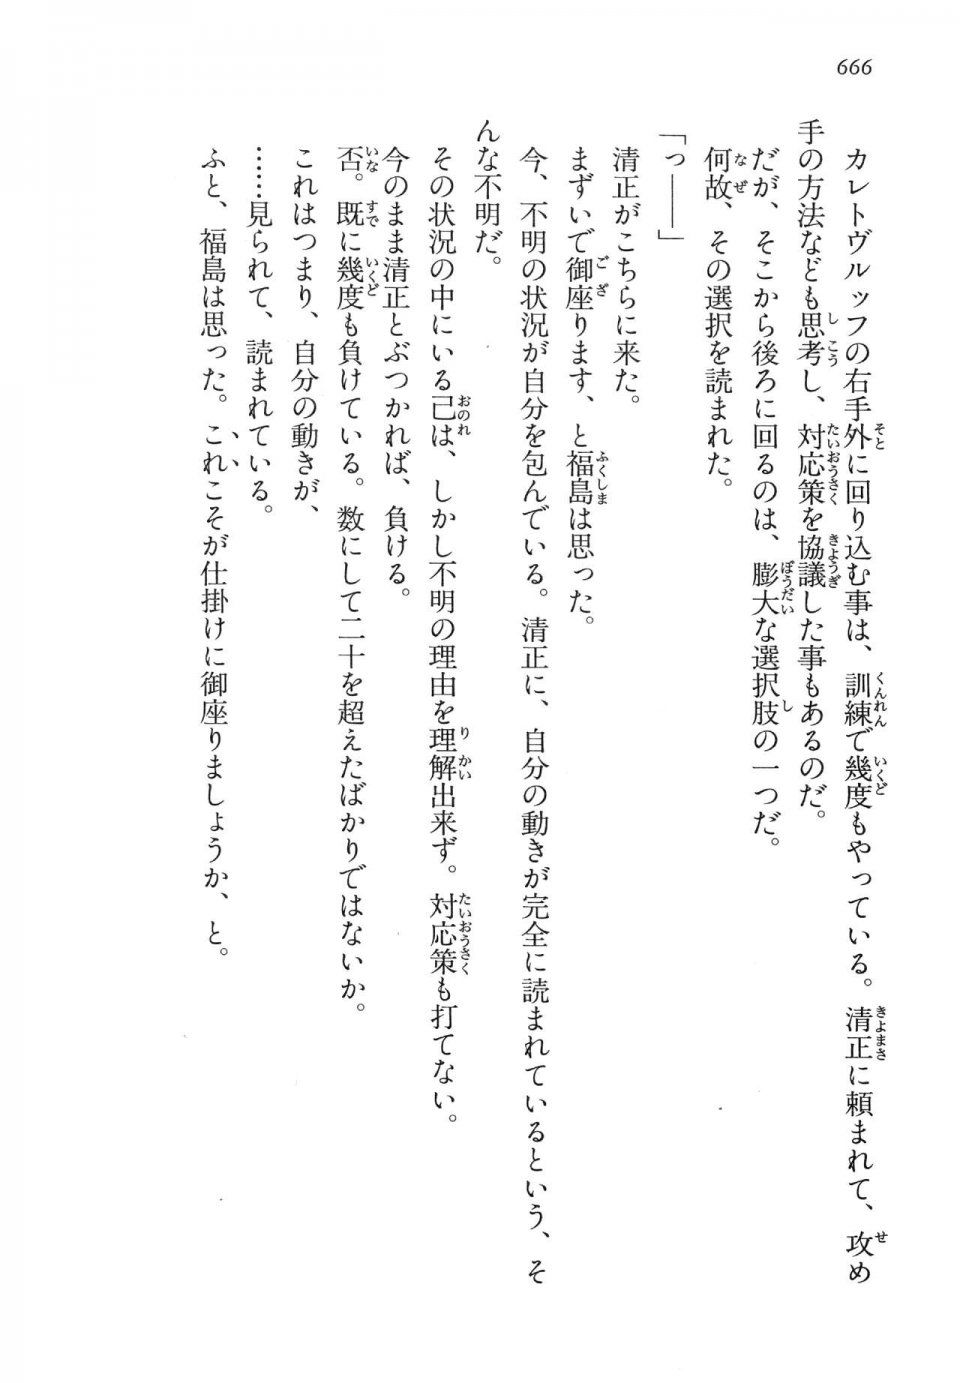 666
カレトヴルッフの右手外に回り込む事は、訓練で幾度もやっている。清正に頼まれて、攻め
手の方法なども思考し、対応策を協議した事もあるのだ。
だが、そこから後ろに回るのは、膨大な選択肢の一つだ。
何故、その選択を読まれた。
「っ――」
清正がこちらに来た。
まずいで御座ります、と福島は思った。
今、不明の状況が自分を包んでいる。清正に、自分の動きが完全に読まれているという、そ
んな不明だ。
その状況の中にいる己は、しかし不明の理由を理解出来ず。対応策も打てない。
今のまま清正とぶつかれば、負ける。
否。既に幾度も負けている。数にして二十を超えたばかりではないか。
これはつまり、自分の動きが、
……見られて、読まれている。
ふと、福島は思った。これこそが仕掛けに御座りましょうか、と。